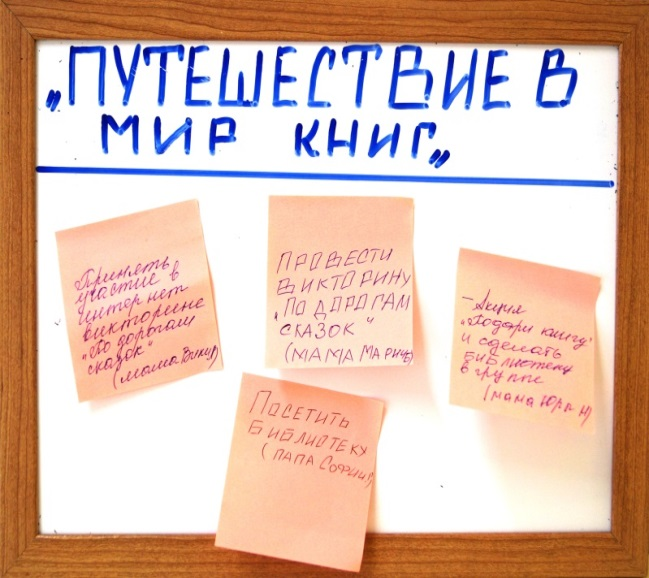 „ПУТЕШЕСТВИЕ В
МИР КНИГ„
Принять
участие в
интернет
викторине
„По дорогам
сказок"
(мама Вики)
ПРОВЕСТИ
ВИКТОРИНУ
„ПО ДОРОГАМ
СКАЗОК"
(МАМА МАРИЧ)
- Акция
„Подари книгу"
и сделать
библиотеку
в группе
(мама Юры Н)
ПОСЕТИТЬ
БИБЛИОТЕКУ
(ПАПА СОФИИ)